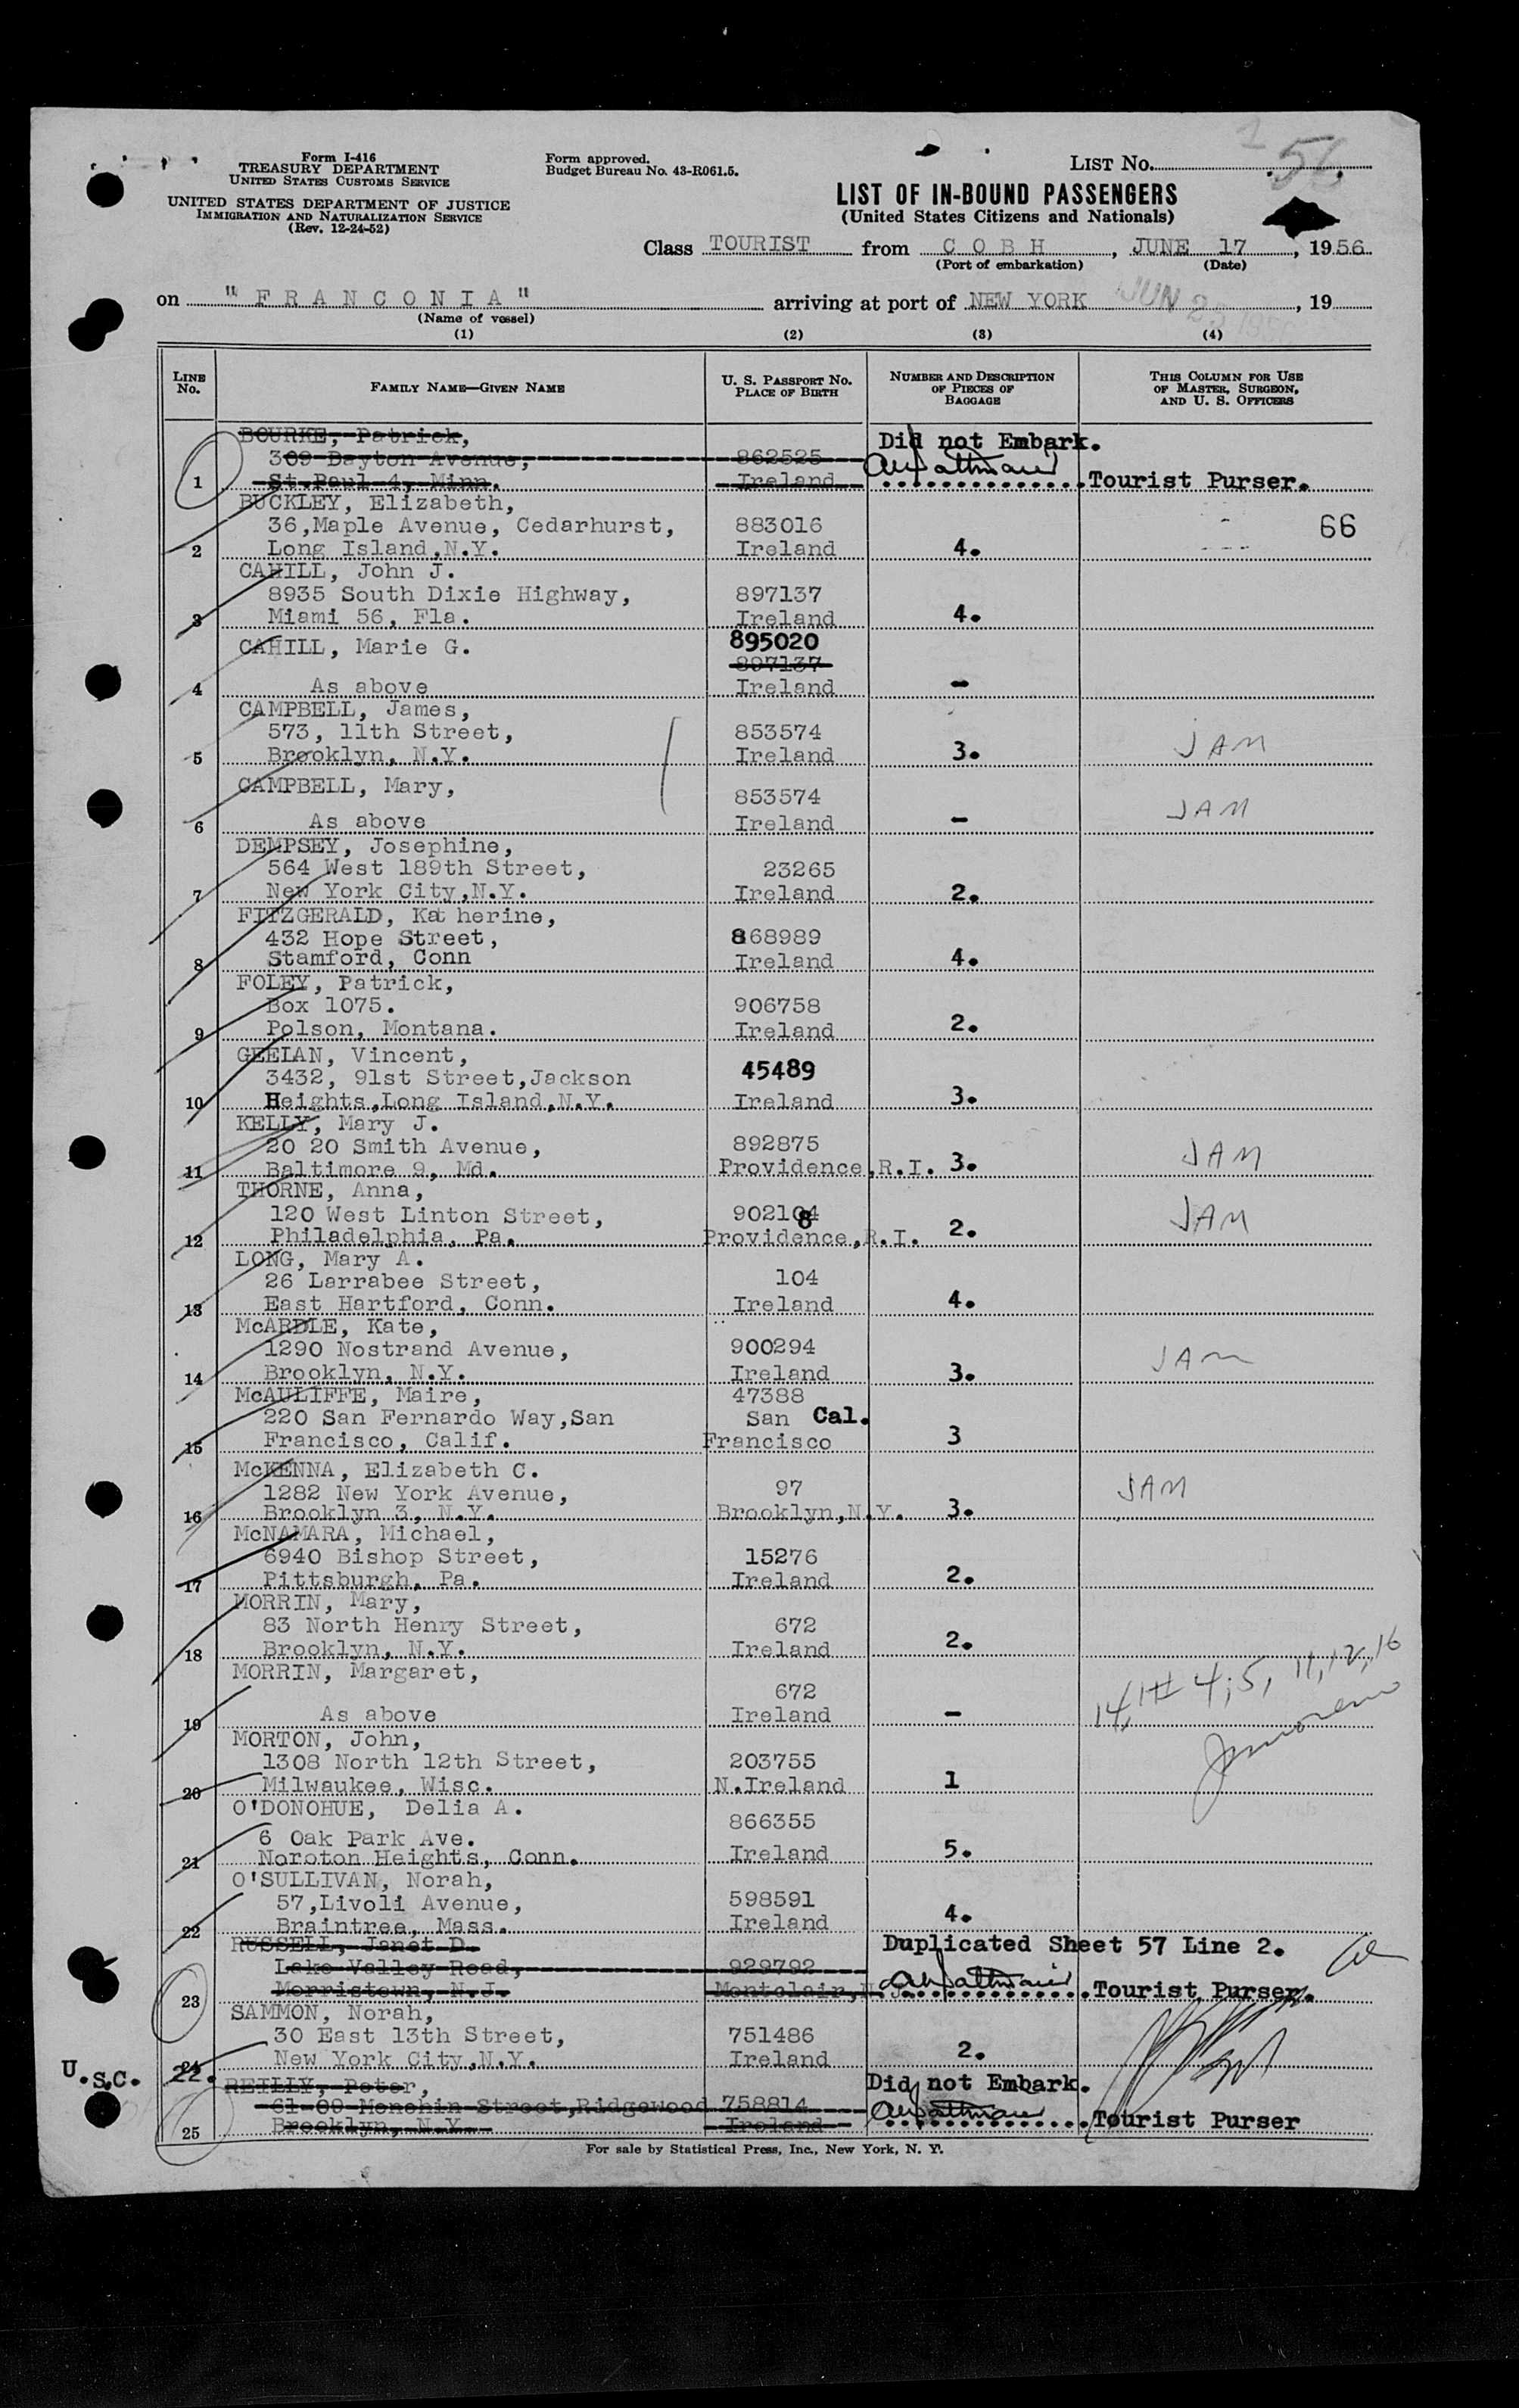 Form I-416
TREASURY DEPARTMENT
UNITED STATES CUSTOMS SERVICE
UNITED STATES DEPARTMENT OF JUSTICE
IMMIGRATION AND NATURALIZATION SERVICE
(Rev. 12-24-52)
Form approved.
Budget Bureau No. 43-R061.5.
LIST NO.
LIST OF IN-BOUND PASSENGERS
(United States Citizens and Nationals)
Class TOURIST from C O B H, JUNE 17, 1956
(Port of embarkation) (Date)
on "F R A N C O N I A" arriving at port of NEW YORK JUN 1956, 19
(Name of vessel)
(1) (2) (3) (4)
LINE NO. FAMILY NAME—GIVEN NAME U. S. PASSPORT NO. PLACE OF BIRTH NUMBER AND DESCRIPTION OF PIECES OF BAGGAGE THIS COLUMN FOR USE OF MASTER, SURGEON, AND U. S. OFFICERS
BOURKE, Patrick, Did not Embark.
309 Dayton Avenue, 862525
1 St.Paul 4, Minn. Ireland Tourist Purser.
BUCKLEY, Elizabeth,
36,Maple Avenue, Cedarhurst, 883016 66
2 Long Island,N.Y. Ireland 4.
CAHILL, John J.
8935 South Dixie Highway, 897137
3 Miami 56, Fla. Ireland 4.
CAHILL, Marie G. 895020
897137
4 As above Ireland -
CAMPBELL, James,
573, 11th Street, 853574
5 Brooklyn, N.Y. Ireland 3. JAM
CAMPBELL, Mary, 853574
6 As above Ireland - JAM
DEMPSEY, Josephine,
564 West 189th Street, 23265
7 New York City,N.Y. Ireland 2.
FITZGERALD, Katherine,
432 Hope Street, 868989
8 Stamford, Conn Ireland 4.
FOLEY, Patrick,
Box 1075. 906758
9 Polson, Montana. Ireland 2.
GEELAN, Vincent,
3432, 91st Street,Jackson 45489
10 Heights,Long Island,N.Y. Ireland 3.
KELLY, Mary J.
20 20 Smith Avenue, 892875
11 Baltimore 9, Md. Providence,R.I. 3. JAM
THORNE, Anna,
120 West Linton Street, 902104 8
12 Philadelphia, Pa. Providence,R.I. 2. JAM
LONG, Mary A.
26 Larrabee Street, 104
13 East Hartford, Conn. Ireland 4.
McARDLE, Kate,
1290 Nostrand Avenue, 900294
14 Brooklyn, N.Y. Ireland 3. JAM
McAULIFFE, Maire, 47388
220 San Fernardo Way,San San Cal.
15 Francisco, Calif. Francisco 3
McKENNA, Elizabeth C.
1282 New York Avenue, 97
16 Brooklyn 3, N.Y. Brooklyn,N.Y. 3. JAM
McNAMARA, Michael,
6940 Bishop Street, 15276
17 Pittsburgh, Pa. Ireland 2.
MORRIN, Mary,
83 North Henry Street, 672
18 Brooklyn, N.Y. Ireland 2.
MORRIN, Margaret, 672
19 As above Ireland -
4, 5, 11, 12, 16
MORTON, John,
1308 North 12th Street, 203755
20 Milwaukee, Wisc. N.Ireland 1
O'DONOHUE, Delia A.
6 Oak Park Ave. 866355
21 Noroton Heights, Conn. Ireland 5.
O'SULLIVAN, Norah,
57,Livoli Avenue, 598591
22 Braintree, Mass. Ireland 4.
RUSSELL, Janet D. Duplicated Sheet 57 Line 2.
Lake Valley Road, 929792
23 Morristown, N.J. Montclair,N.J. Tourist Purser.
SAMMON, Norah,
30 East 13th Street, 751486
24 New York City,N.Y. Ireland 2.
U.S.C. 22.
REILLY, Peter, Did not Embark.
61-09 Menehin Street,Ridgewood 758814
25 Brooklyn, N.Y. Ireland Tourist Purser
For sale by Statistical Press, Inc., New York, N. Y.